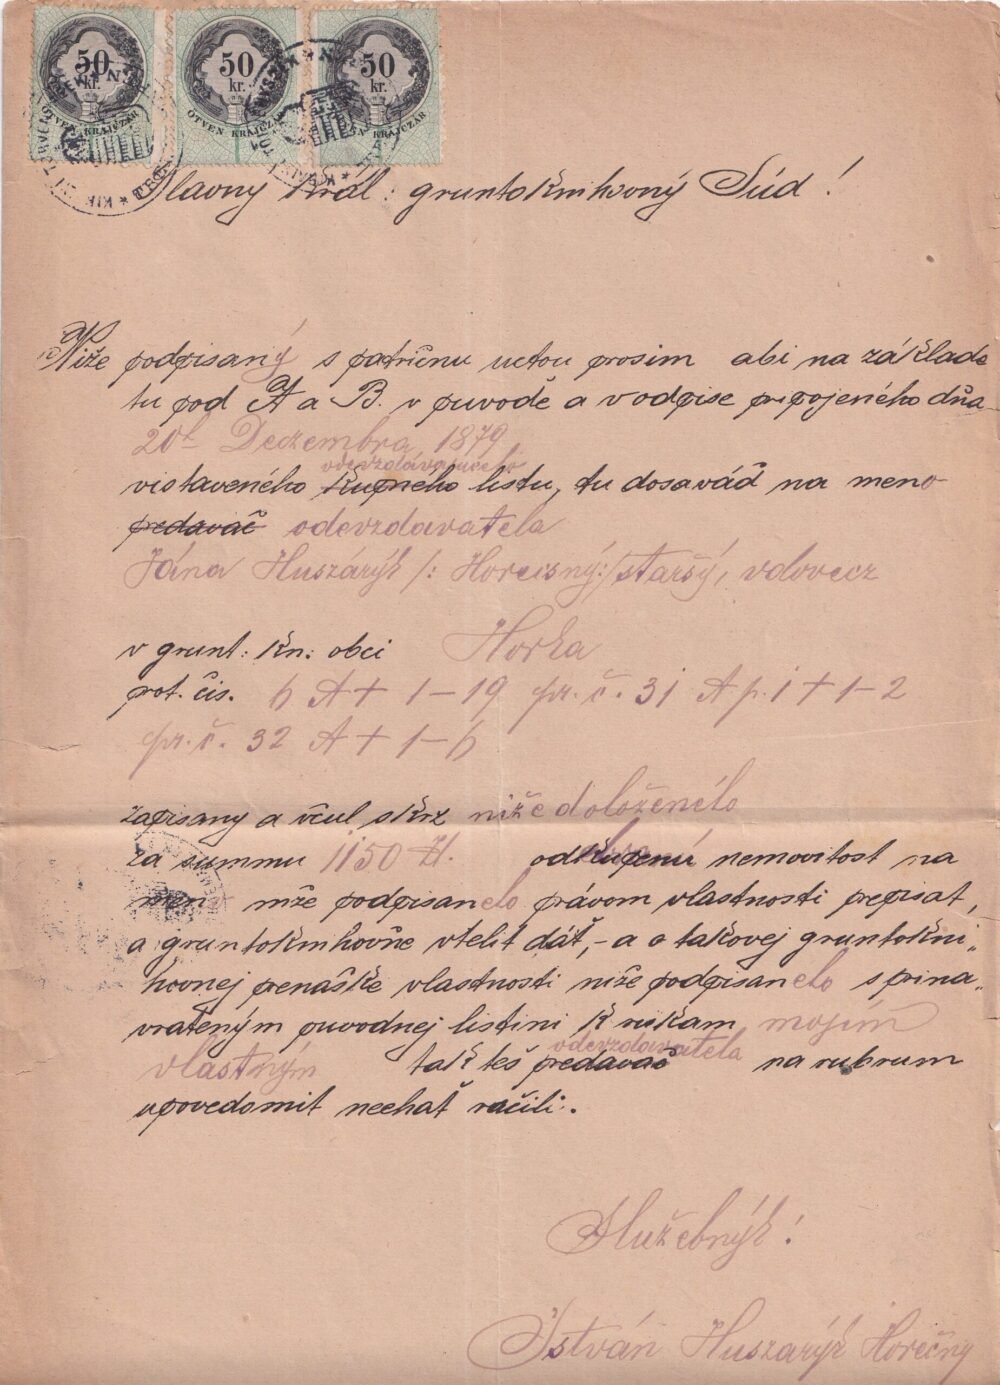 50 kr. 50 kr. 50 kr.
ÖTVEN KRAJCZÁR ÖTVEN KRAJCZÁR KRAJCZÁR
Slavny Král: gruntoknihovný Súd!
Niže podpisaný s patričnu uctou prosim abi na základe
tu pod A a B. v puvode a v odpise pripojeného dňa
20h Dezembra 1879
odevzdávajúceho
vistaveného kupného listu, tu dosaváď na meno
predavač odevzdavatela
Jána Huszárýk /: Horecsný:/ starší, vdovecz
v grunt: kn: obci Horka
prot. čis. 6 A + 1–19 pr. č. 31 A p. i + 1–2
pr. č. 32 A + 1–6
zapisany a včul skrz niže doloženého
za summu 1150 Zl. odkupenú nemovitost na
meno niže podpisaneho právom vlastnosti prepisat,
a gruntoknihovňe vtelit dáť,- a o takovej gruntokni„
hovnej prenáške vlastnosti niže podpisaneho s prina„
vrateným puvodnej listini k rukam mojím
odevzdavatela
vlastným tak teš predavač na rubrum
upovedomit nechať račili:.
Služebnýk!
István Huszarýk Horečný